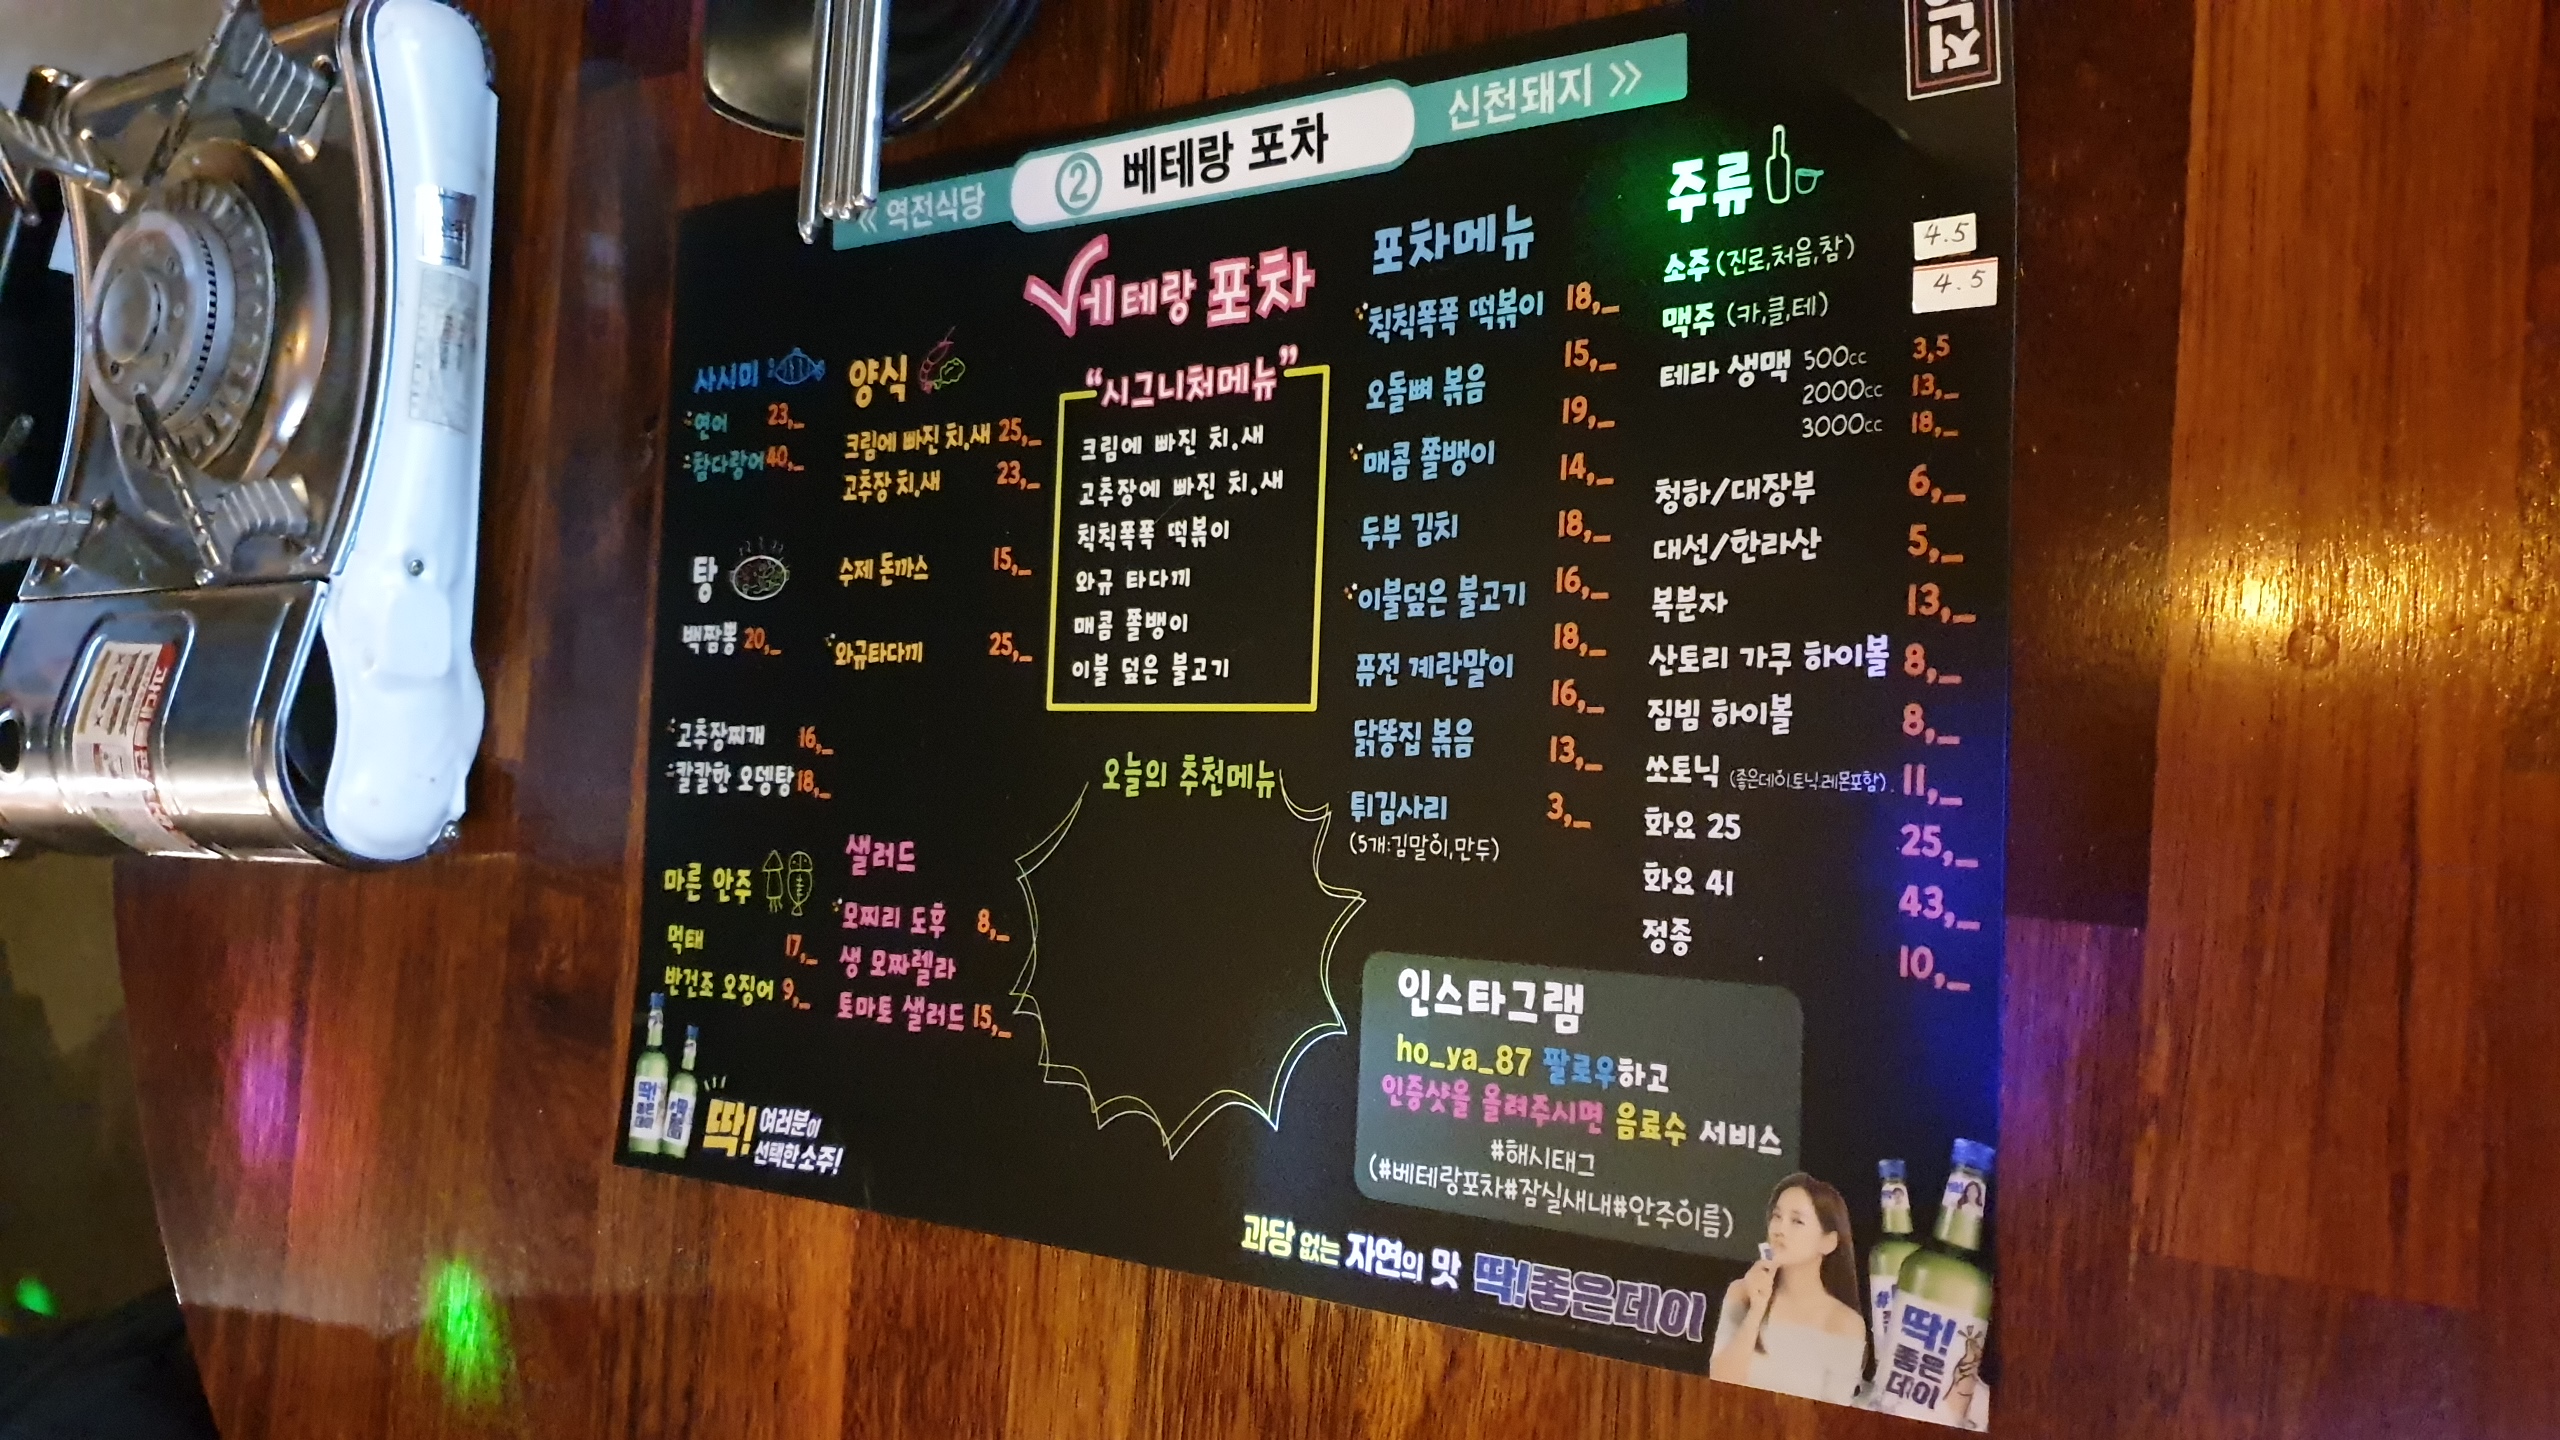 « 역전식당
② 베테랑 포차
신천돼지 »
베테랑 포차
사시미
연어 23,_
참다랑어 40,_
탕
백짬뽕 20,_
고추장찌개 16,_
칼칼한 오뎅탕 18,_
마른 안주
먹태 17,_
반건조 오징어 9,_
양식
크림에 빠진 치.새 25,_
고추장 치.새 23,_
수제 돈까스 15,_
와규타다끼 25,_
샐러드
모찌리 도후 8,_
생 모짜렐라
토마토 샐러드 15,_
"시그니처메뉴"
크림에 빠진 치.새
고추장에 빠진 치.새
칙칙폭폭 떡볶이
와규 타다끼
매콤 쫄뱅이
이불 덮은 불고기
오늘의 추천메뉴
포차메뉴
칙칙폭폭 떡볶이 18,_
오돌뼈 볶음 15,_
매콤 쫄뱅이 19,_
두부 김치 14,_
이불덮은 불고기 18,_
16,_
퓨전 계란말이 18,_
닭똥집 볶음 16,_
13,_
튀김사리 3,_
(5개:김말이,만두)
주류
소주 (진로,처음,참) 4.5
맥주 (카,클,테) 4.5
테라 생맥 500cc 3,5
2000cc 13,_
3000cc 18,_
청하/대장부 6,_
대선/한라산 5,_
복분자 13,_
산토리 가쿠 하이볼 8,_
짐빔 하이볼 8,_
쏘토닉 (좋은데이,토닉,레몬포함). 11,_
화요 25 25,_
화요 41 43,_
정종 10,_
인스타그램
ho_ya_87 팔로우하고
인증샷을 올려주시면 음료수 서비스
#해시태그
(#베테랑포차#잠실새내#안주이름)
딱! 여러분이
선택한 소주!
과당 없는 자연의 맛 딱!좋은데이
딱!
좋은
데이
딱!
좋은
데이